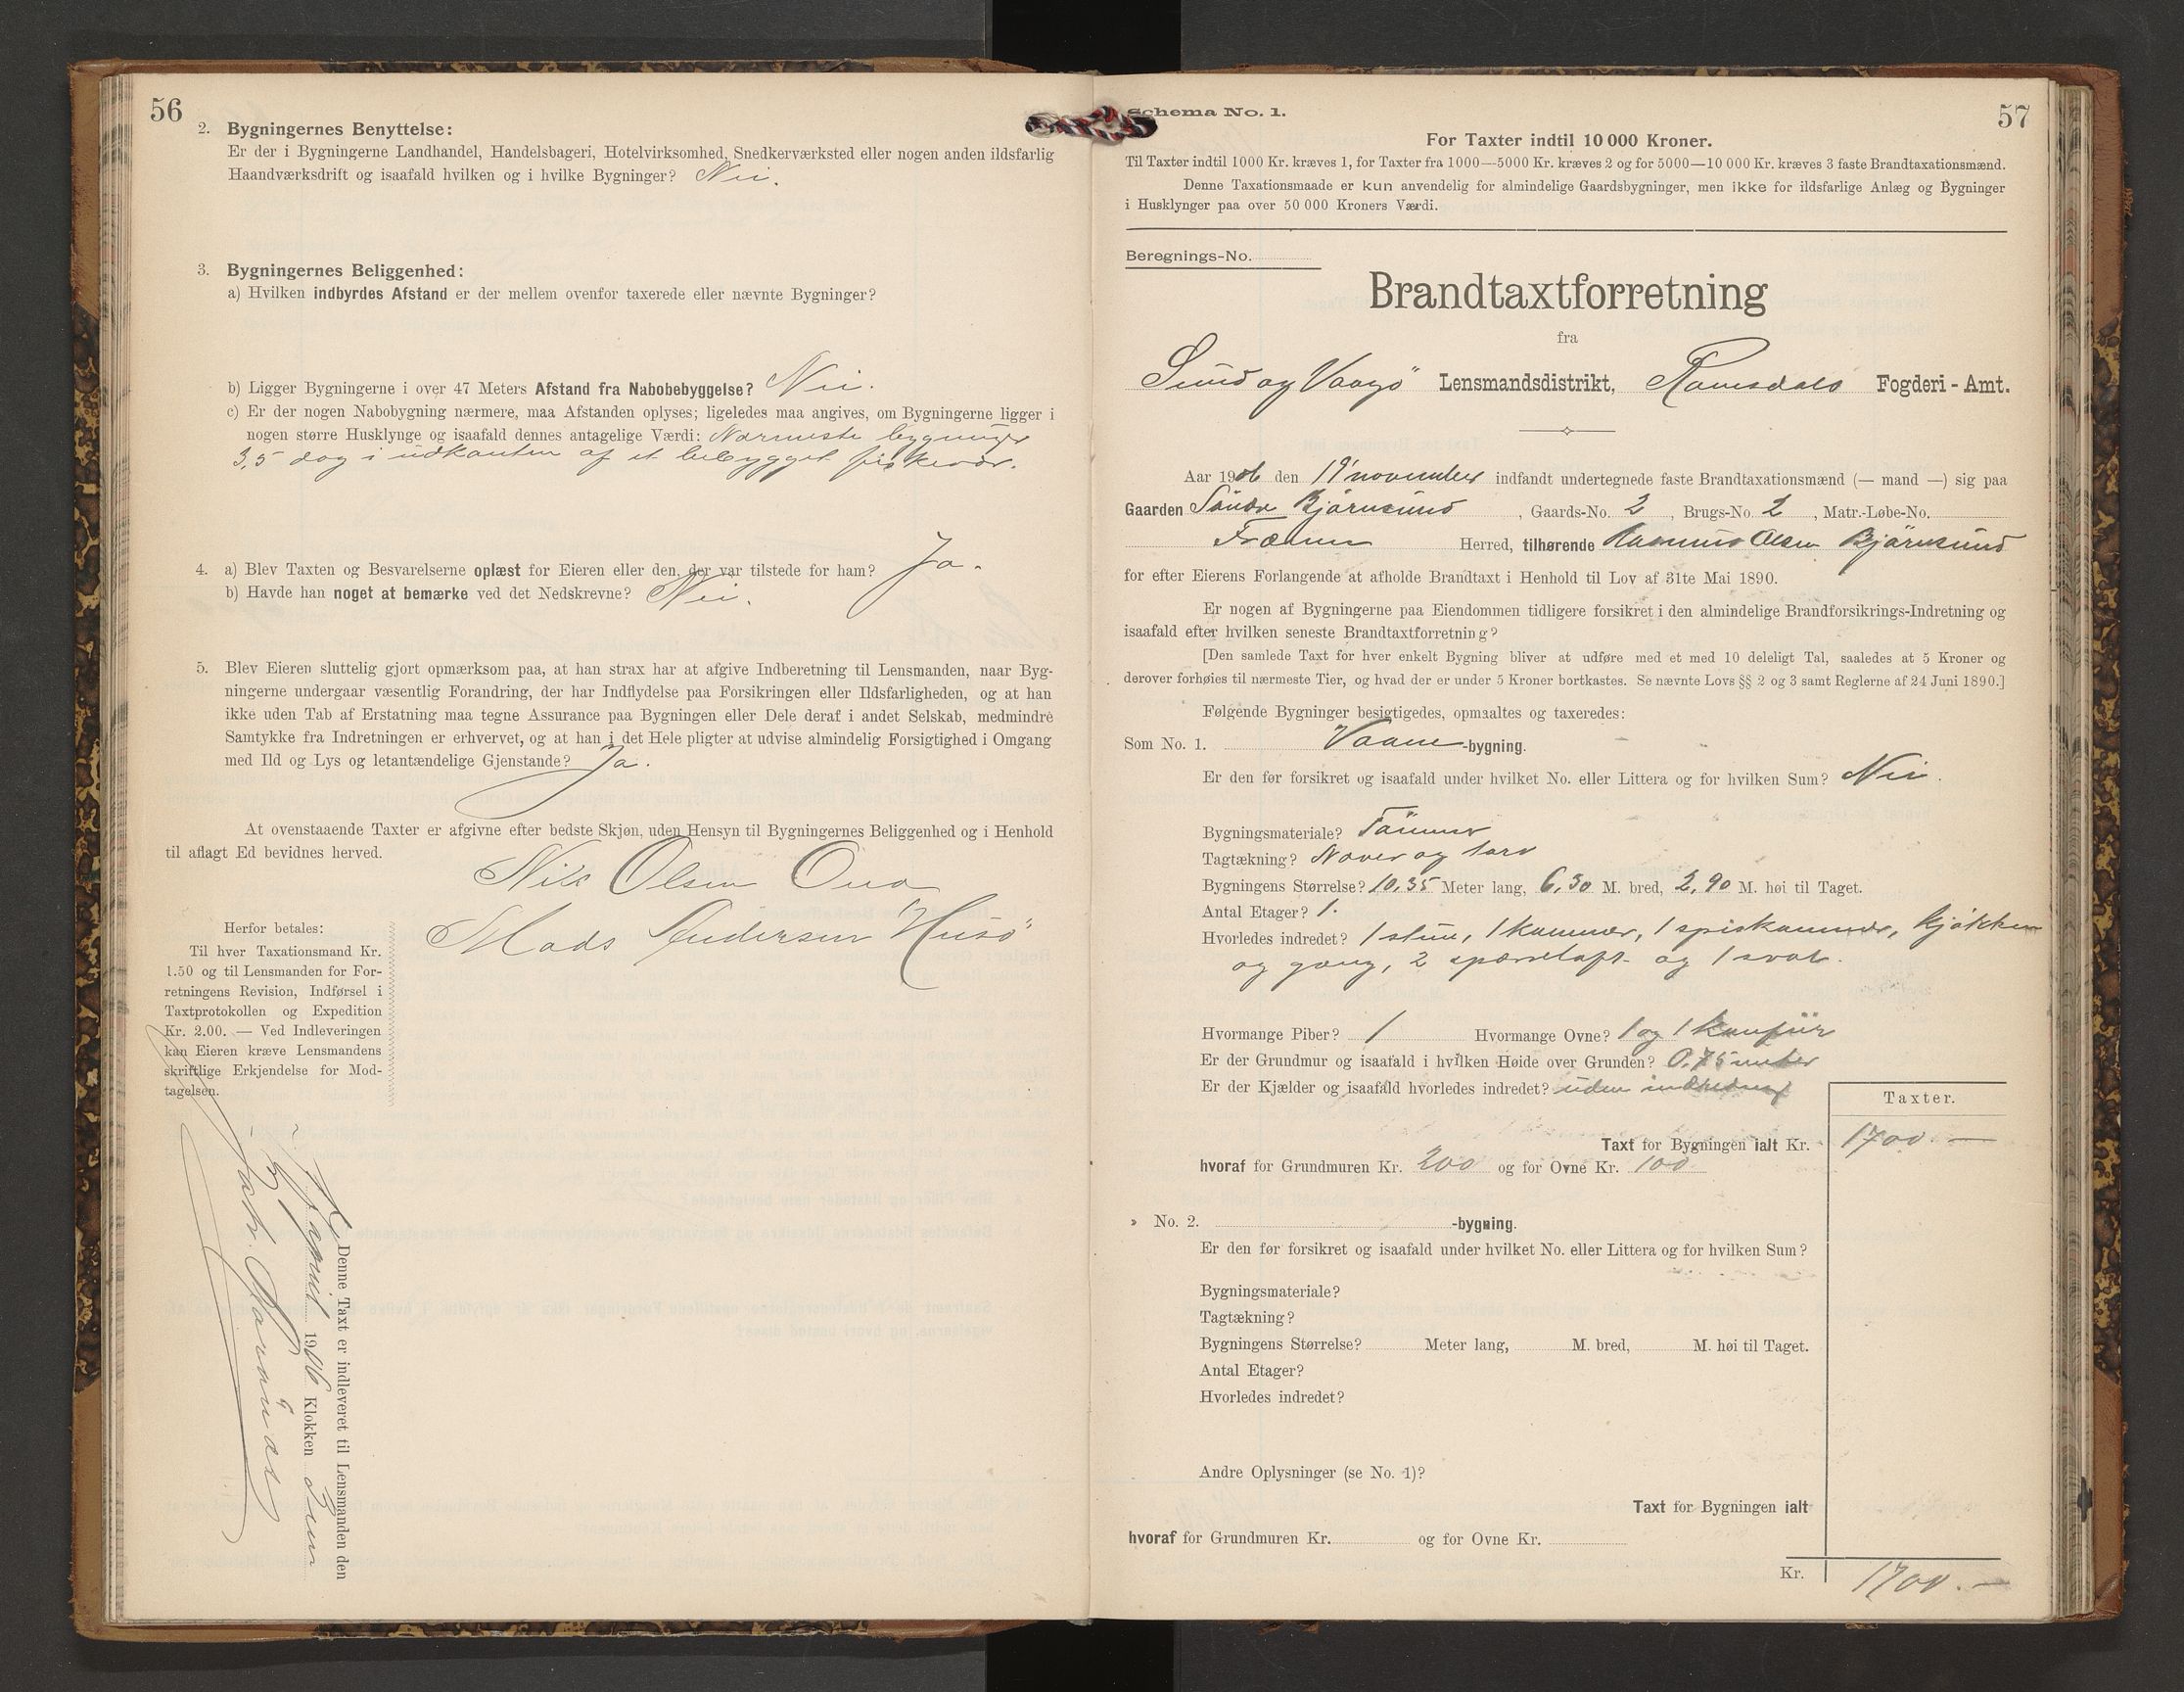 56
2. Bygningernes Benyttelse:
Er der i Bygningerne Landhandel, Handelsbageri, Hotelvirksomhed, Snedkerværksted eller nogen anden ildsfarlig
Haandværksdrift og isaafald hvilken og i hvilke Bygninger? Nei.
3. Bygningernes Beliggenhed:
a) Hvilken indbyrdes Afstand er der mellem ovenfor taxerede eller nævnte Bygninger?
b) Ligger Bygningerne i over 47 Meters Afstand fra Nabobebyggelse? Nei.
c) Er der nogen Nabobygning nærmere, maa Afstanden oplyses; ligeledes maa angives, om Bygningerne ligger i
nogen større Husklynge og isaafald dennes antagelige Værdi: Nærmeste bygninger
3,5 dog i udkanten af et bebygget fiskevær.
4. a) Blev Taxten og Besvarelserne oplæst for Eieren eller den, der var tilstede for ham? Ja.
b) Havde han noget at bemærke ved det Nedskrevne? Nei.
5. Blev Eieren sluttelig gjort opmærksom paa, at han strax har at afgive Indberetning til Lensmanden, naar Byg-
ningerne undergaar væsentlig Forandring, der har Indflydelse paa Forsikringen eller Ildsfarligheden, og at han
ikke uden Tab af Erstatning maa tegne Assurance paa Bygningen eller Dele deraf i andet Selskab, medmindre
Samtykke fra Indretningen er erhvervet, og at han i det Hele pligter at udvise almindelig Forsigtighed i Omgang
med Ild og Lys og letantændelige Gjenstande? Ja.
At ovenstaaende Taxter er afgivne efter bedste Skjøn, uden Hensyn til Bygningernes Beliggenhed og i Henhold
til aflagt Ed bevidnes herved.
Nils Olsen Ona
Mads Andersen Husö
Herfor betales:
Til hver Taxationsmand Kr.
1.50 og til Lensmanden for For-
retningens Revision, Indførsel i
Taxtprotokollen og Expedition
Kr. 2.00. — Ved Indleveringen
kan Eieren kræve Lensmandens
skriftlige Erkjendelse for Mod-
tagelsen.
Denne Taxt er indleveret til Lensmanden den
1906 Klokken
57
Schema No. 1.
For Taxter indtil 10 000 Kroner.
Til Taxter indtil 1000 Kr. kræves 1, for Taxter fra 1000—5000 Kr. kræves 2 og for 5000—10 000 Kr. kræves 3 faste Brandtaxationsmænd.
Denne Taxationsmaade er kun anvendelig for almindelige Gaardsbygninger, men ikke for ildsfarlige Anlæg og Bygninger
i Husklynger paa over 50 000 Kroners Værdi.
Beregnings-No.
Brandtaxtforretning
fra
Sund og Vaagö Lensmandsdistrikt, Romsdals Fogderi - Amt.
Aar 1906 den 19 november indfandt undertegnede faste Brandtaxationsmænd (— mand —) sig paa
Gaarden Söndre Björnsund, Gaards-No. 2, Brugs-No. 2, Matr.-Løbe-No.
Frænen Herred, tilhørende Rasmus Olsen Björnsund
for efter Eierens Forlangende at afholde Brandtaxt i Henhold til Lov af 31te Mai 1890.
Er nogen af Bygningerne paa Eiendommen tidligere forsikret i den almindelige Brandforsikrings-Indretning og
isaafald efter hvilken seneste Brandtaxtforretning?
[Den samlede Taxt for hver enkelt Bygning bliver at udføre med et med 10 deleligt Tal, saaledes at 5 Kroner og
derover forhøies til nærmeste Tier, og hvad der er under 5 Kroner bortkastes. Se nævnte Lovs §§ 2 og 3 samt Reglerne af 24 Juni 1890.]
Følgende Bygninger besigtigedes, opmaaltes og taxeredes:
Som No. 1. Vaane-bygning.
Er den før forsikret og isaafald under hvilket No. eller Littera og for hvilken Sum? Nei.
Bygningsmateriale? Tömmer
Tagtækning? Never og torv
Bygningens Størrelse? 10,35 Meter lang, 6,30 M. bred, 2,90 M. høi til Taget.
Antal Etager? 1.
Hvorledes indredet? 1 stue, 1 kammer, 1 spiskammer, kjökken
og gang, 2 spærreloft og 1 sval.
Hvormange Piber? 1 Hvormange Ovne? 1 og 1 komfür
Er der Grundmur og isaafald i hvilken Høide over Grunden? 0,75 meter
Er der Kjælder og isaafald hvorledes indredet? uden indredning
Taxter.
Taxt for Bygningen ialt Kr. 1700.—
hvoraf for Grundmuren Kr. 200 og for Ovne Kr. 100
» No. 2. -bygning.
Er den før forsikret og isaafald under hvilket No. eller Littera og for hvilken Sum?
Bygningsmateriale?
Tagtækning?
Bygningens Størrelse? Meter lang, M. bred, M. høi til Taget.
Antal Etager?
Hvorledes indredet?
Andre Oplysninger (se No. 1)?
Taxt for Bygningen ialt
hvoraf for Grundmuren Kr. og for Ovne Kr.
Kr. 1700.—